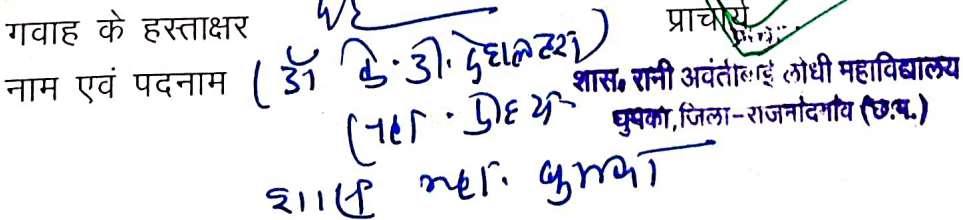 गवाह के हस्ताक्षर
प्राचार्य
नाम एवं पदनाम (डॉ के. डी. देशलहरा)
शास. रानी अवंतीबाई लोधी महाविद्यालय
घुमका, जिला-राजनांदगांव (छ.ग.)
(सहा. प्राध्या
शास महा. घुमका